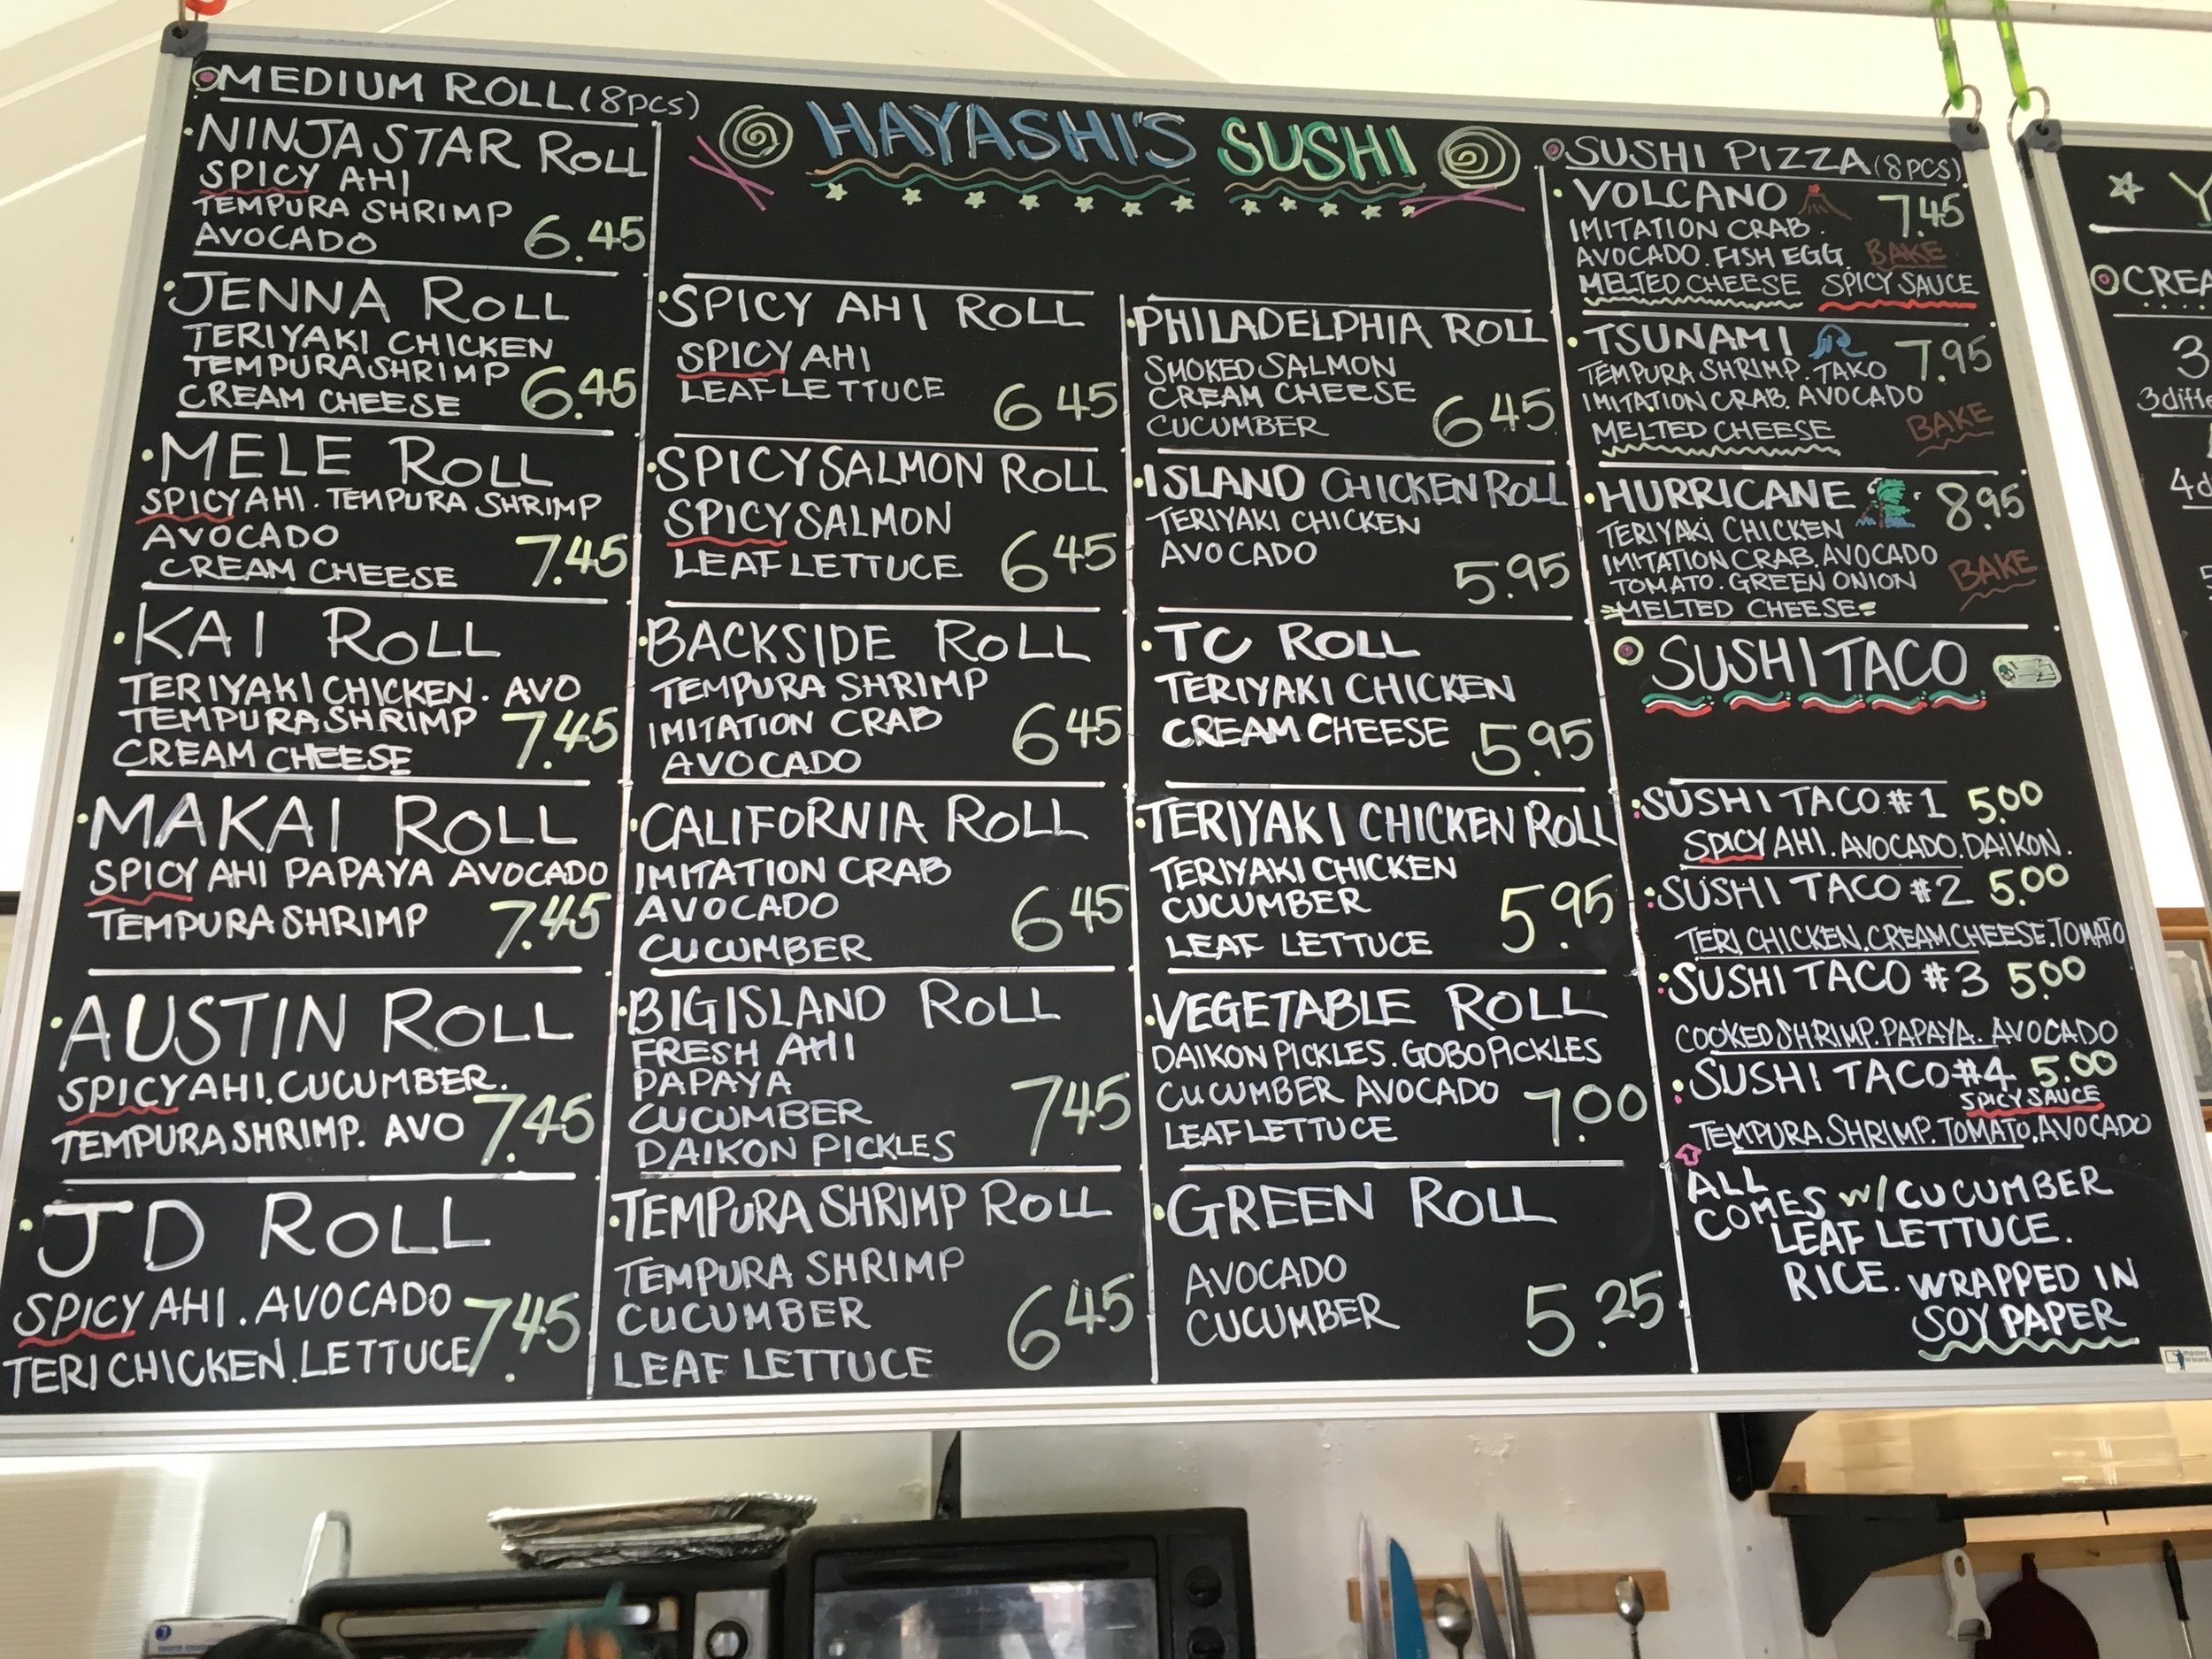 MEDIUM ROLL (8pcs)
NINJA STAR ROLL
SPICY AHI
TEMPURA SHRIMP
AVOCADO 6.45
JENNA ROLL
TERIYAKI CHICKEN
TEMPURA SHRIMP
CREAM CHEESE 6.45
MELE ROLL
SPICY AHI. TEMPURA SHRIMP
AVOCADO
CREAM CHEESE 7.45
KAI ROLL
TERIYAKI CHICKEN. AVO
TEMPURA SHRIMP
CREAM CHEESE 7.45
MAKAI ROLL
SPICY AHI PAPAYA AVOCADO
TEMPURA SHRIMP 7.45
AUSTIN ROLL
SPICY AHI. CUCUMBER.
TEMPURA SHRIMP. AVO 7.45
JD ROLL
SPICY AHI. AVOCADO
TERI CHICKEN. LETTUCE 7.45
HAYASHI'S SUSHI
SPICY AHI ROLL
SPICY AHI
LEAF LETTUCE 6.45
SPICY SALMON ROLL
SPICY SALMON
LEAF LETTUCE 6.45
BACKSIDE ROLL
TEMPURA SHRIMP
IMITATION CRAB 6.45
AVOCADO
CALIFORNIA ROLL
IMITATION CRAB
AVOCADO 6.45
CUCUMBER
BIG ISLAND ROLL
FRESH AHI
PAPAYA
CUCUMBER 7.45
DAIKON PICKLES
TEMPURA SHRIMP ROLL
TEMPURA SHRIMP
CUCUMBER 6.45
LEAF LETTUCE
PHILADELPHIA ROLL
SMOKED SALMON
CREAM CHEESE
CUCUMBER 6.45
ISLAND CHICKEN ROLL
TERIYAKI CHICKEN
AVOCADO
5.95
TC ROLL
TERIYAKI CHICKEN
CREAM CHEESE 5.95
TERIYAKI CHICKEN ROLL
TERIYAKI CHICKEN
CUCUMBER 5.95
LEAF LETTUCE
VEGETABLE ROLL
DAIKON PICKLES. GOBO PICKLES
CUCUMBER AVOCADO 7.00
LEAF LETTUCE
GREEN ROLL
AVOCADO
CUCUMBER 5.25
SUSHI PIZZA (8pcs)
VOLCANO 7.45
IMITATION CRAB.
AVOCADO. FISH EGG. BAKE
MELTED CHEESE SPICY SAUCE
TSUNAMI 7.95
TEMPURA SHRIMP. TAKO
IMITATION CRAB. AVOCADO
MELTED CHEESE BAKE
HURRICANE 8.95
TERIYAKI CHICKEN
IMITATION CRAB. AVOCADO
TOMATO. GREEN ONION BAKE
MELTED CHEESE
SUSHI TACO
SUSHI TACO #1 5.00
SPICY AHI. AVOCADO. DAIKON.
SUSHI TACO #2 5.00
TERI CHICKEN. CREAM CHEESE. TOMATO
SUSHI TACO #3 5.00
COOKED SHRIMP. PAPAYA. AVOCADO
SUSHI TACO #4 5.00
SPICY SAUCE
TEMPURA SHRIMP. TOMATO. AVOCADO
ALL
COMES w/ CUCUMBER
LEAF LETTUCE.
RICE. WRAPPED IN
SOY PAPER